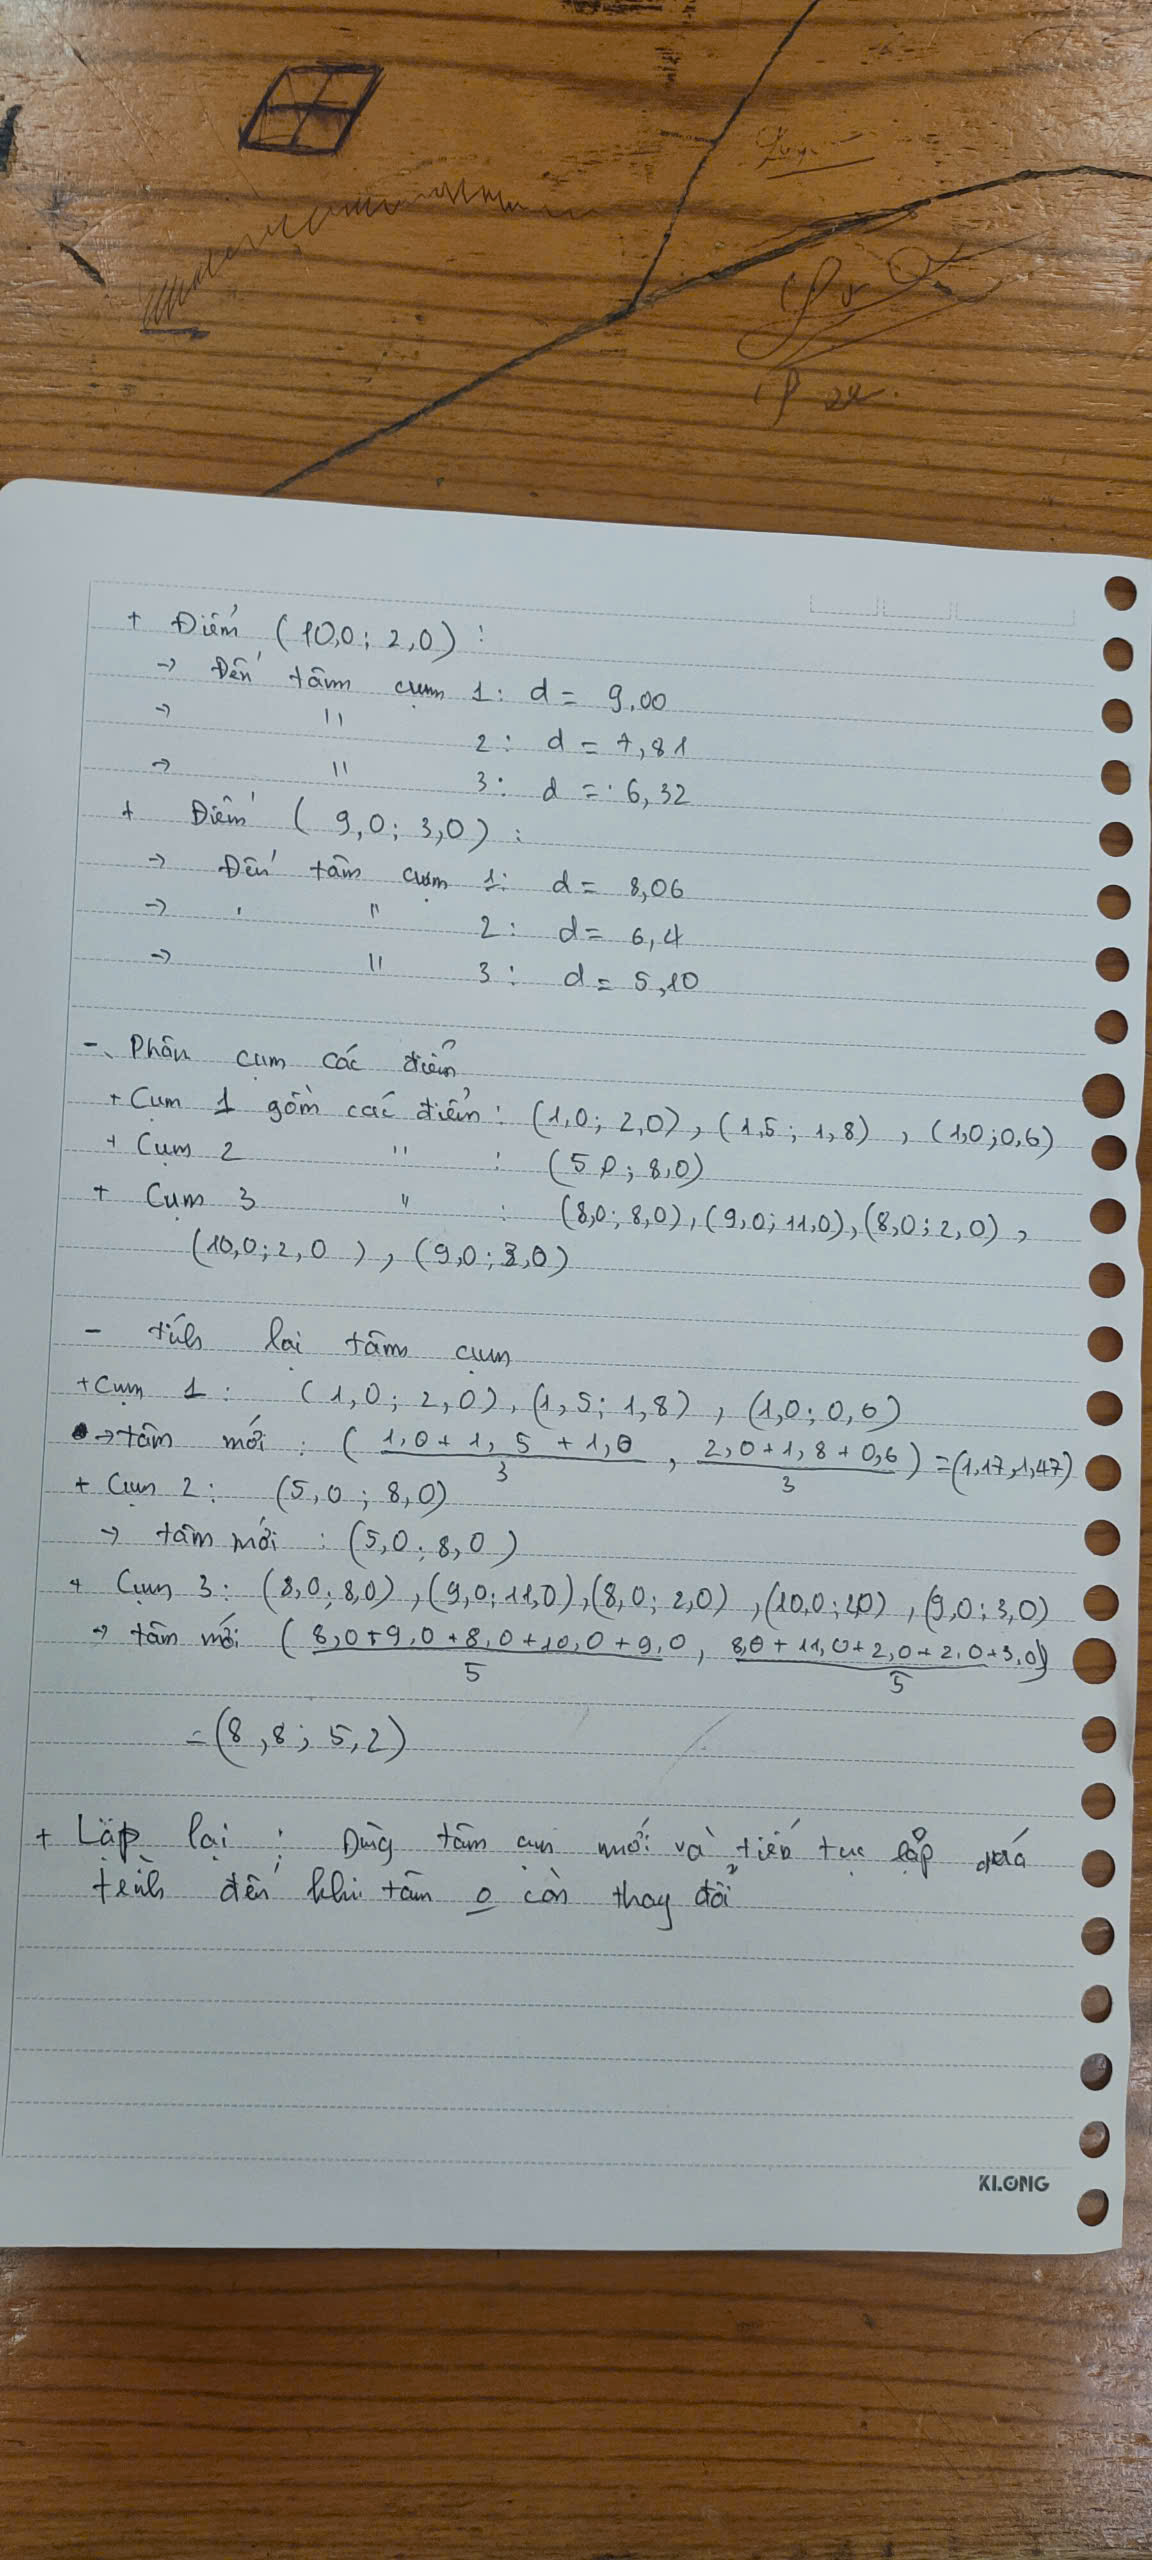 + Điểm (10,0; 2,0) :
-> Đến tâm cụm 1: d = 9,00
-> " 2: d = 7,81
-> " 3: d = 6,32
+ Điểm (9,0; 3,0) :
-> Đến tâm cụm 1: d = 8,06
-> " 2: d = 6,4
-> " 3: d = 5,10
- Phân cụm các điểm
+ Cụm 1 gồm các điểm : (1,0; 2,0), (1,5; 1,8), (1,0; 0,6)
+ Cụm 2 " : (5,0; 8,0)
+ Cụm 3 " : (8,0; 8,0), (9,0; 11,0), (8,0; 2,0),
(10,0; 2,0), (9,0; 3,0)
- tính lại tâm cụm
+ Cụm 1: (1,0; 2,0), (1,5; 1,8), (1,0; 0,6)
-> tâm mới : ( (1,0 + 1,5 + 1,0)/3 , (2,0 + 1,8 + 0,6)/3 ) = (1,17, 1,47)
+ Cụm 2: (5,0; 8,0)
-> tâm mới : (5,0; 8,0)
+ Cụm 3: (8,0; 8,0), (9,0; 11,0), (8,0; 2,0), (10,0; 2,0), (9,0; 3,0)
-> tâm mới ( (8,0 + 9,0 + 8,0 + 10,0 + 9,0)/5 , (8,0 + 11,0 + 2,0 + 2,0 + 3,0)/5 )
= (8,8; 5,2)
+ Lặp lại : Dùng tâm cụm mới và tiếp tục lặp quá
trình đến khi tâm o còn thay đổi
KLONG